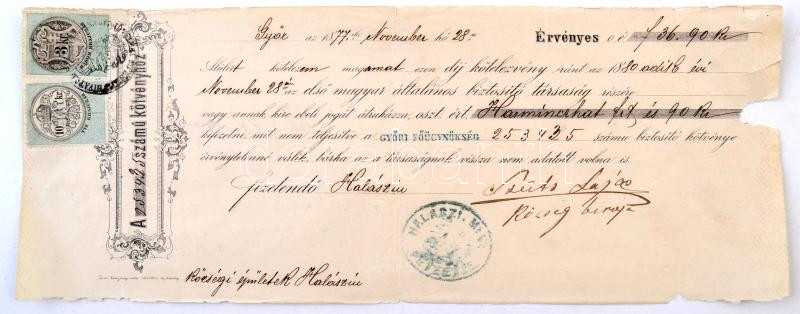 Győr az 1877 dc November hó 28 án Érvényes o é f 36.90 kr
Alólirt kötelezem magamat ezen dij kötelezvény iránt az 1880 adik évi
November 28 án az első magyar általános biztositó társaság részére
vagy annak, kire ebeli jogát átruházza, oszt. ért. Harminczhat frt és 90 kr
kifizetni, mit nem teljesitve a GYŐRI FŐÜGYNÖKSÉG számu biztositó kötvénye
érvénytelenné válik, bárha az a társaságnak vissza nem adatott volna is.
fizetendő Halászin
Szüts Lajos
Község birája
HALÁSZI
Községi épületek Halászin
A számu kötvényhez
3 kr